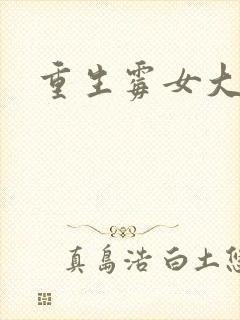 重生霉女大
真島浩 白土悠